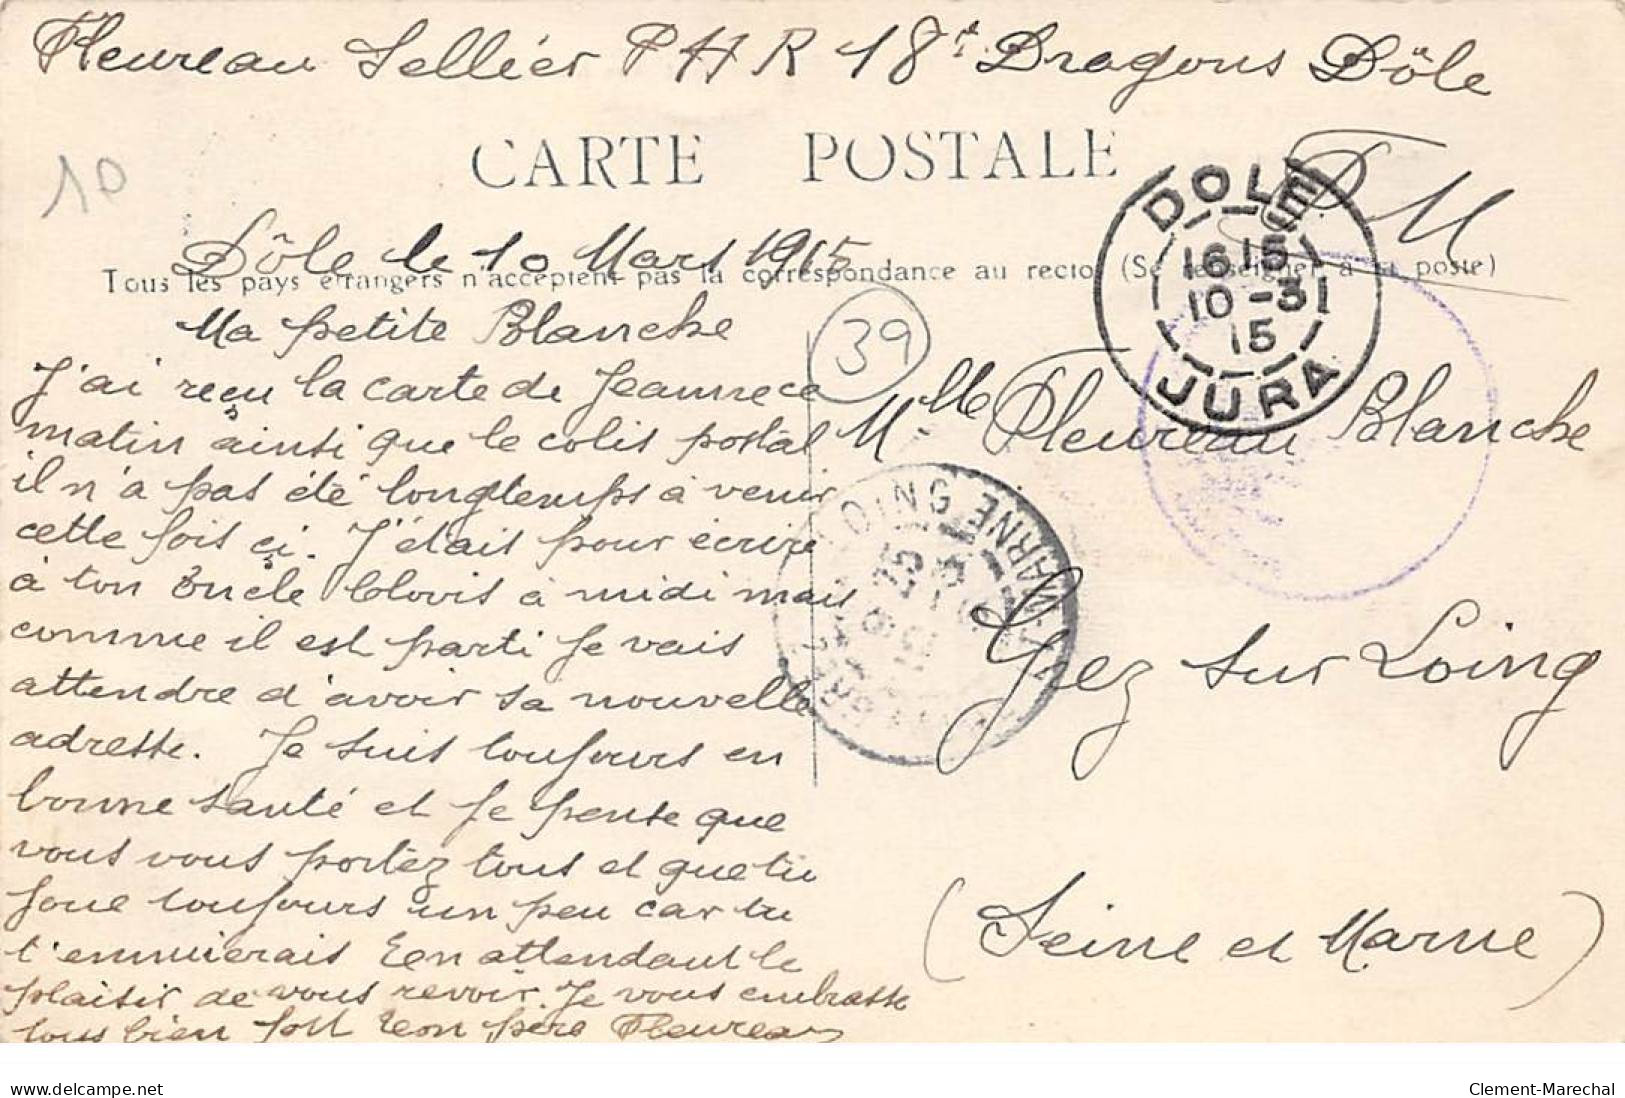 Fleureau Sellier P H R 18e Dragons Dôle
CARTE POSTALE
F M
10
Dôle le 10 Mars 1915
Tous les pays étrangers n'acceptent pas la correspondance au recto (Se renseigner à la poste)
DOLE
1615
10-3
15
JURA
39
Ma petite Blanche
J'ai reçu la carte de Jeanne ce
matin ainsi que le colis postal
il n'a pas été longtemps à venir
cette fois çi. J'étais pour écrire
à ton oncle Clovis à midi mais
comme il est parti je vais
attendre d'avoir sa nouvelle
adresse. Je suis toujours en
bonne santé et je pense que
vous vous portez tous et que tu
joue toujours un peu car tu
t'ennuierais En attendant le
plaisir de vous revoir. Je vous embrasse
tous bien fort Ton père Fleureau
Mlle Fleureau Blanche
Grez sur Loing
(Seine et Marne)
delcampe.net
Clement-Marechal